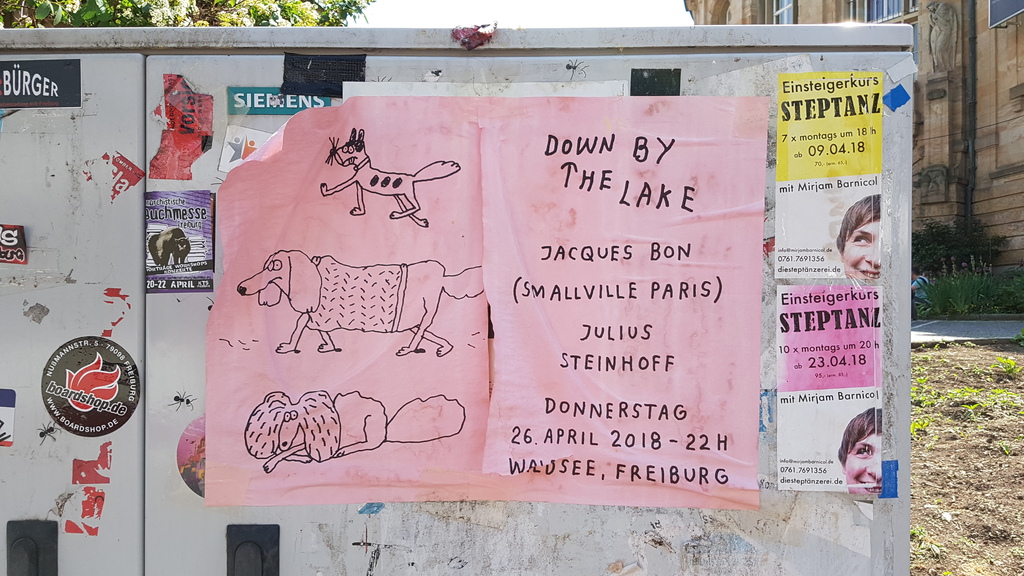 BÜRGER
SIEMENS
Buchmesse
20-22 APRIL
NUßMANNSTR. 5 - 79098 FREIBURG
boardshop.de
WWW.BOARDSHOP.DE
DOWN BY
THE LAKE
JACQUES BON
(SMALLVILLE PARIS)
JULIUS
STEINHOFF
DONNERSTAG
26. APRIL 2018 - 22H
WALDSEE, FREIBURG
Einsteigerkurs
STEPTANZ
7 x montags um 18 h
ab 09.04.18
70,- (erm. 65,)
mit Mirjam Barnicol
info@mirjambarnicol.de
0761.7691356
diesteptänzerei.de
Einsteigerkurs
STEPTANZ
10 x montags um 20 h
ab 23.04.18
95,- (erm. 85,)
mit Mirjam Barnicol
info@mirjambarnicol.de
0761.7691356
diesteptänzerei.de